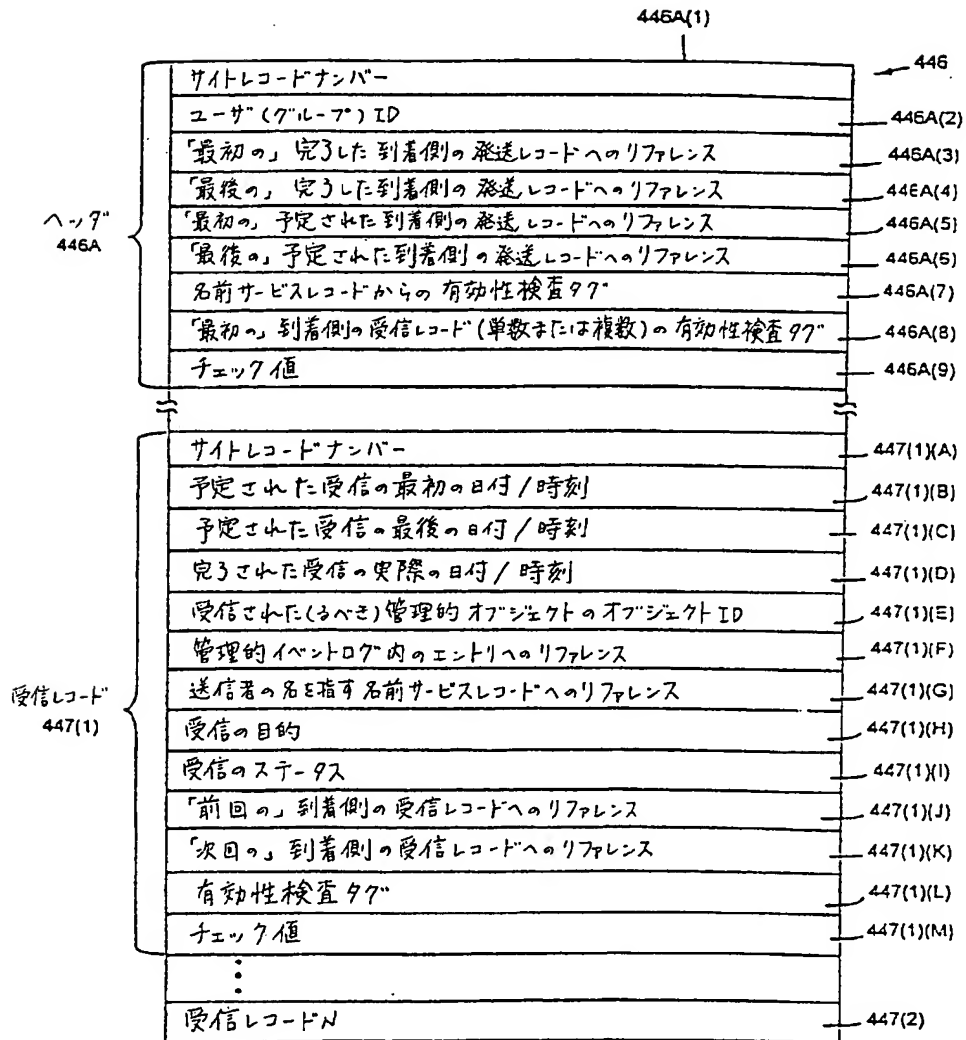 446A(1)
446
サイトレコードナンバー
ユーザ(グループ)ID 446A(2)
「最初の」完了した到着側の発送レコードへのリファレンス 446A(3)
「最後の」完了した到着側の発送レコードへのリファレンス 44EA(4)
「最初の」予定された到着側の発送レコードへのリファレンス 446A(5)
「最後の」予定された到着側の発送レコードへのリファレンス 446A(6)
ヘッダ
446A
名前サービスレコードからの有効性検査タグ 446A(7)
「最初の」到着側の受信レコード(単数または複数)の有効性検査タグ 446A(8)
チェック値 446A(9)
サイトレコードナンバー 447(1)(A)
予定された受信の最初の日付/時刻 447(1)(B)
予定された受信の最後の日付/時刻 447(1)(C)
完了された受信の実際の日付/時刻 447(1)(D)
受信された(るべき)管理的オブジェクトのオブジェクトID 447(1)(E)
管理的イベントログ内のエントリへのリファレンス 447(1)(F)
送信者の名を指す名前サービスレコードへのリファレンス 447(1)(G)
受信レコード
447(1)
受信の目的 447(1)(H)
受信のステータス 447(1)(I)
「前回の」到着側の受信レコードへのリファレンス 447(1)(J)
「次回の」到着側の受信レコードへのリファレンス 447(1)(K)
有効性検査タグ 447(1)(L)
チェック値 447(1)(M)
受信レコードN 447(2)